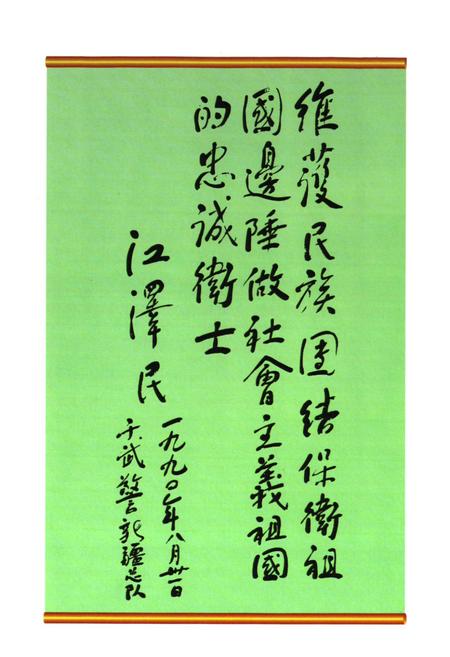 維護民族團结保衛祖
國邊陲做社會主義祖國
的忠诚衛士
江澤民
一九九〇年八月卅一日
于武警新疆总队